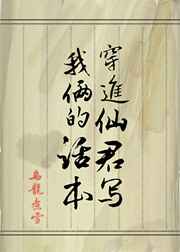 穿進仙君写
我俩的话本
乌龍盏雪